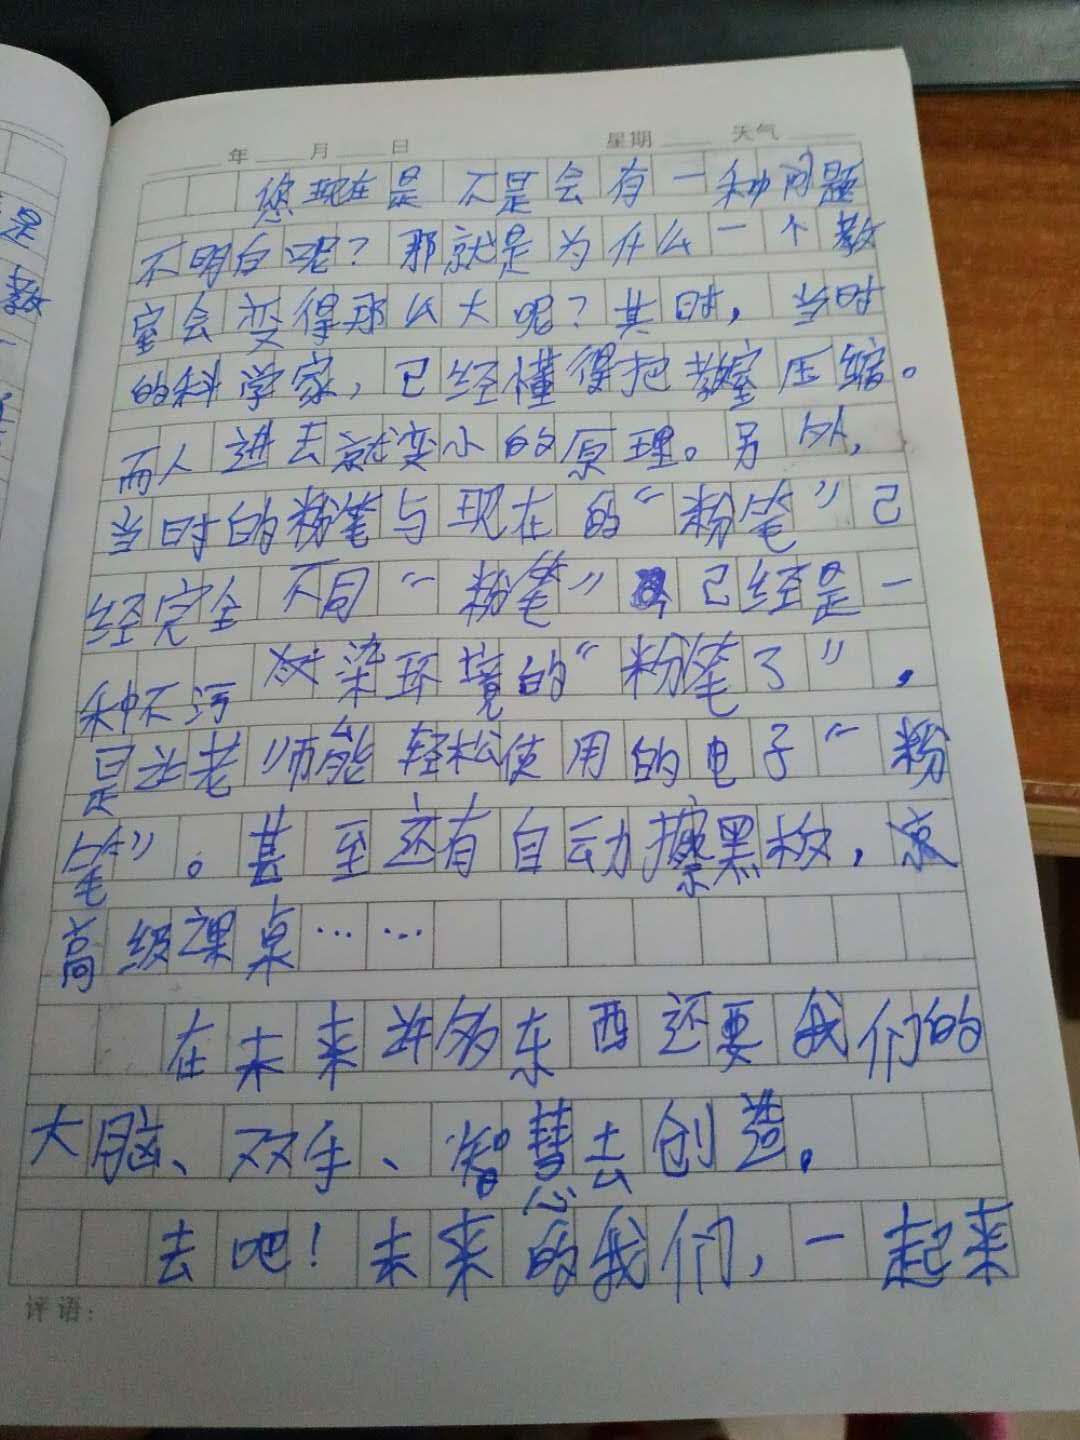 年 月 日 星期 天气
您现在是不是会有一种问题
不明白呢？那就是为什么一个教
室会变得那么大呢？其时，当时
的科学家，已经懂得把教室压缩。
而人进去就变小的原理。另外，
当时的粉笔与现在的“粉笔”已
经完全不同“粉笔”已经是一
种不污染环境的“粉笔了”，
是让老师能轻松使用的电子“粉
笔”。甚至还有自动擦黑板，
高级课桌……
在未来许多东西还要我们的
大脑、双手、智慧去创造。
去吧！未来的我们，一起来
评语：
是
教